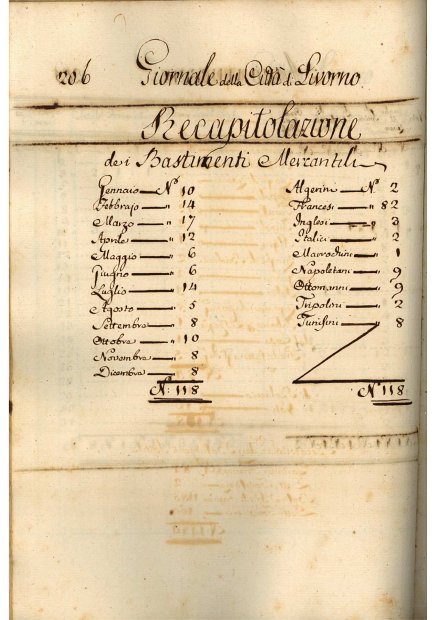 206 Giornale della Città di Livorno
Recapitolazione
dei Bastimenti Mercantili
Gennaio — N.º 10
Febbrajo — " 14
Marzo — " 17
Aprile — " 12
Maggio — " 6
Giugno — " 6
Luglio — " 14
Agosto — " 5
Settembre " 8
Ottobre — " 10
Novembre — " 8
Dicembre — " 8
N.º 118
Algerini — N.º 2
Francesi — " 82
Inglesi — " 3
Italici — " 2
Marrochini — " 1
Napoletani — " 9
Ottomanni — " 9
Tripolini — " 2
Tunisini — " 8
N.º 118